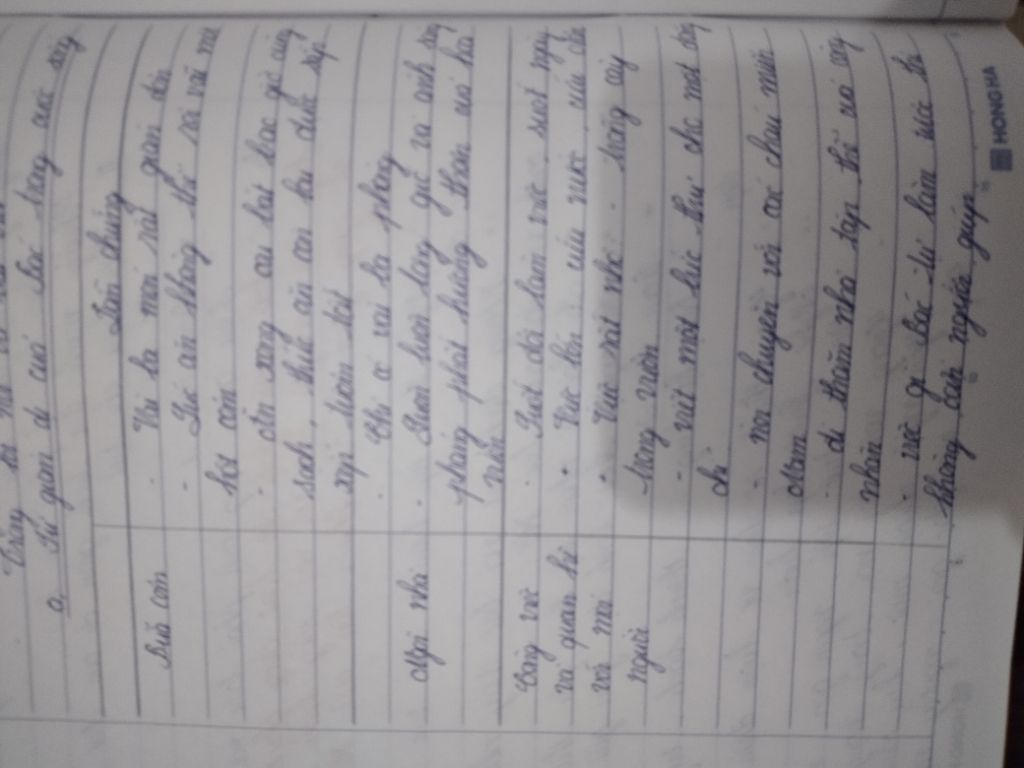 a. Sự giản dị của Bác trong cuộc sống
Dẫn chứng
Bữa cơm
- Vài ba món rất giản đơn
- Lúc ăn không để rơi vãi một
hột cơm
- ăn xong cái bát bao giờ cũng
sạch, thức ăn còn lại được sắp
xếp tươm tất
Ngôi nhà
- Chỉ có vài ba phòng
- Luôn luôn lộng gió và ánh sáng
phảng phất hương thơm của hoa
vườn
Công việc
và quan hệ
với mọi
người
- Suốt đời làm việc, suốt ngày
- Việc lớn: cứu nước, cứu dân
- Việc rất nhỏ: trồng cây
trong vườn
- viết một bức thư cho một đồng
chí
- nói chuyện với các cháu miền
Nam
- đi thăm nhà tập thể của công
nhân
- việc gì Bác tự làm được thì
không cần người giúp
HONG HA